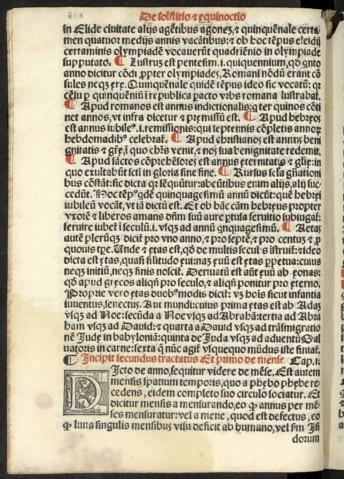 De solstitio et equinoctio
in Elide ciuitate alijs agētibus agonez et quinquēnale certa
men quatuor medijs annis vacātibus: et ob hoc tēpus eleidū
certaminis olympiadē vocauerūt quadriēnio in olympiade
supputato. ¶ Lustrus est pentesim. i. quiquennium, qd qnto
anno dicitur cōdi propter olympiades. Romani nōdū erant cō
sules necqz ere. Quinquēnale quidē tēpus ideo sic vocatū: qz
cēsu p quinquēniū i republica pacto vrbs romana lustrabat.
¶ Apud romanos est annus indictionalis: qz ter quinos cōti
net annos, vt infra dicetur et pximū est. ¶ Apud hebreos
est annus iubileꝰ. i. remissionis: qui septennis cōpletis annorum
hebdomadibꝰ celebrat. ¶ Apud christianos est annus beni
gnitatis et glie, i quo christus venit, et nos sua benignitate redemit.
¶ Apud sanctos cōprehēsores est annus eternitatis et glie: in
quo exultabūt scti in gloria sine fine. ¶ Rursus scla gnationi
bus cōstāt: sic dicta qz sequūtur: abeūtibus enim alijs, alij suc
cedūt. Hoc tēpꝰ qdē quinquagesimū annū dicūt: quē hebrei
iubileū vocāt, vt iā dictū est. Et ob hāc cām hebreus propter
vxorē et liberos amans dn̄m suū aure ptusa seruitio subiugatꝰ
seruire iubet i seculū. i. vsqz ad annū qnquagesimū. ¶ Aetas
autē plerūqz dicit pro vno anno, et pro septē, et pro centuz et p
quouis tpe. Unde et etas est, qd de multis secul is istruit: et ideo
dicta est etas, quasi silitudo euitaz euū est etas ppetua: cuius
necqz initiū, necqz finis noscit. Deriuatū est aūt euū ab eonas:
qd apud grecos aliqn pro seculo, et aliqn ponitur pro eterno.
Proprie vero etas duobꝰ modis dicit: vt hois sicut infantia
iuuentus, senectus. Aut mundi: cuius prima etas est ab Adaz
vsqz ad Noe: secūda a Noe vsqz ad Abrahā: tertia ad Abra
ham vsqz ad Dauid: et quarta a Dauid vsqz ad trāsmigratio
nē Jude in babylonia: quinta de Juda vsqz ad aduentū Dal
uatoris in carne: sexta q nūc agit vsquequo mūdus iste finiat.
¶ Incipit secundus tractatus Et primo de mense Cap. i.
DIcto de anno, sequitur videre de mēse. Est autem
mensis spatium temporis, quo a phebo phebe re
cedens, eidem completo suo circulo sociatur. Et
dicitur mensis a mensurando, eo q annus per mē
ses mensuratur: vel a mene, quod est defectus, eo
q luna singulis mensibus visu deficit ab humano, vel sm Isi
dorum